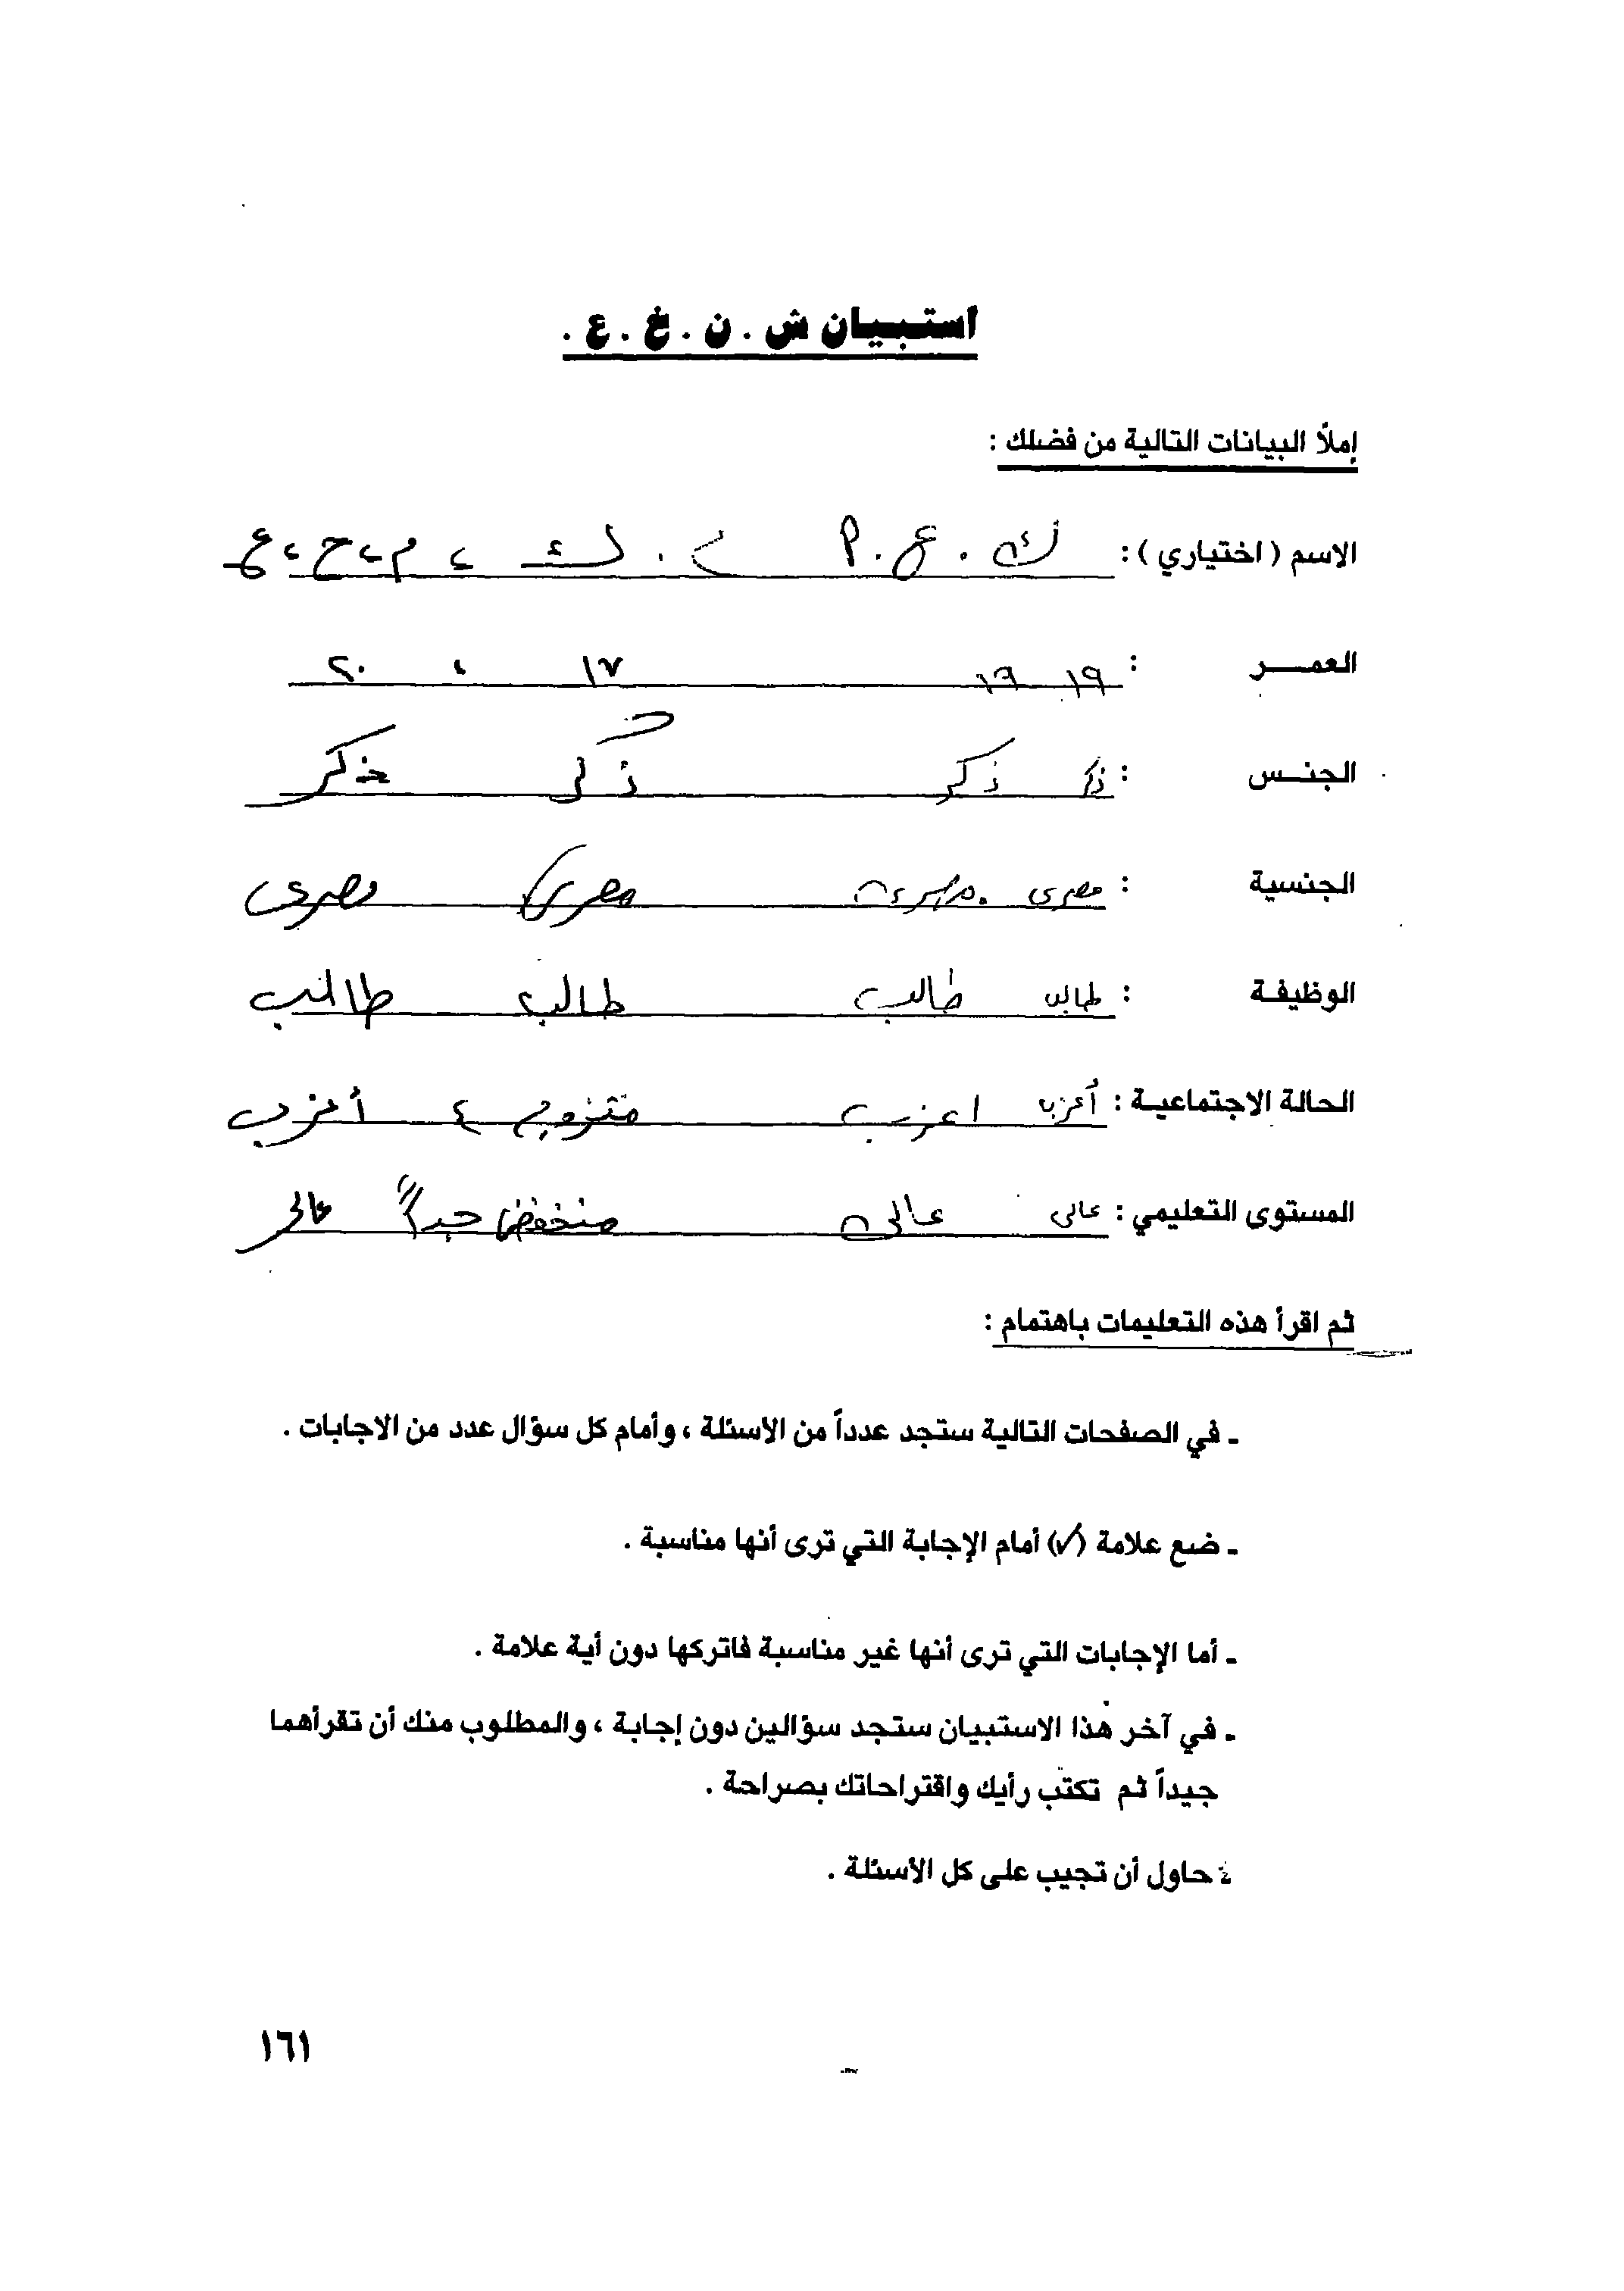 استبيان ش . ن . خ . ع .
إملأ البيانات التالية من فضلك :
الاسم ( اختياري ) : ك . ع . م د . ك ، م ، ح ، ع
العمــر : ١٩ ١٩ ١٧ ، ٢٠
الجنـس : ذكر ذكر ذكر ذكر
الجنسية : مصرى مصرى مصرى
الوظيفـة : طالب طالب طالب طالب
الحالة الاجتماعيـة : أعزب اعزب متزوج ، أعزب
المستوى التعليمي : عالى عالى منخفض جداً عالى
ثم اقرأ هذه التعليمات باهتمام :
ـ في الصفحات التالية ستجد عدداً من الأسئلة ، وأمام كل سؤال عدد من الاجابات .
ـ ضع علامة (✓) أمام الإجابة التي ترى أنها مناسبة .
ـ أما الإجابات التي ترى أنها غير مناسبة فاتركها دون أية علامة .
ـ في آخر هذا الاستبيان ستجد سؤالين دون إجابة ، والمطلوب منك أن تقرأهما
جيداً ثم تكتب رأيك واقتراحاتك بصراحة .
حاول أن تجيب على كل الأسئلة .
١٦١